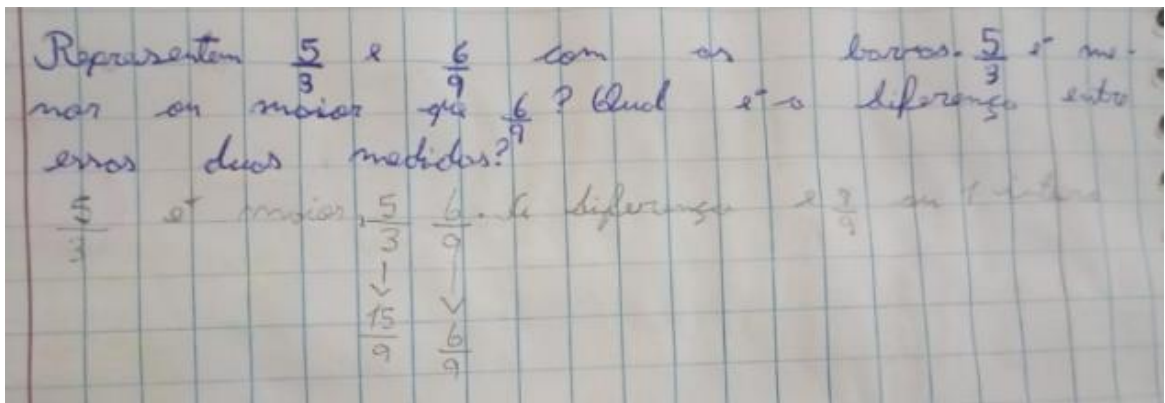 Representem 5/3 e 6/9 com as barras. 5/3 é me-
nor ou maior que 6/9? Qual é a diferença entre
essas duas medidas?
5/3 é maior. 5/3 6/9. A diferença é 9/9 ou 1 inteiro
↓ ↓
15/9 6/9